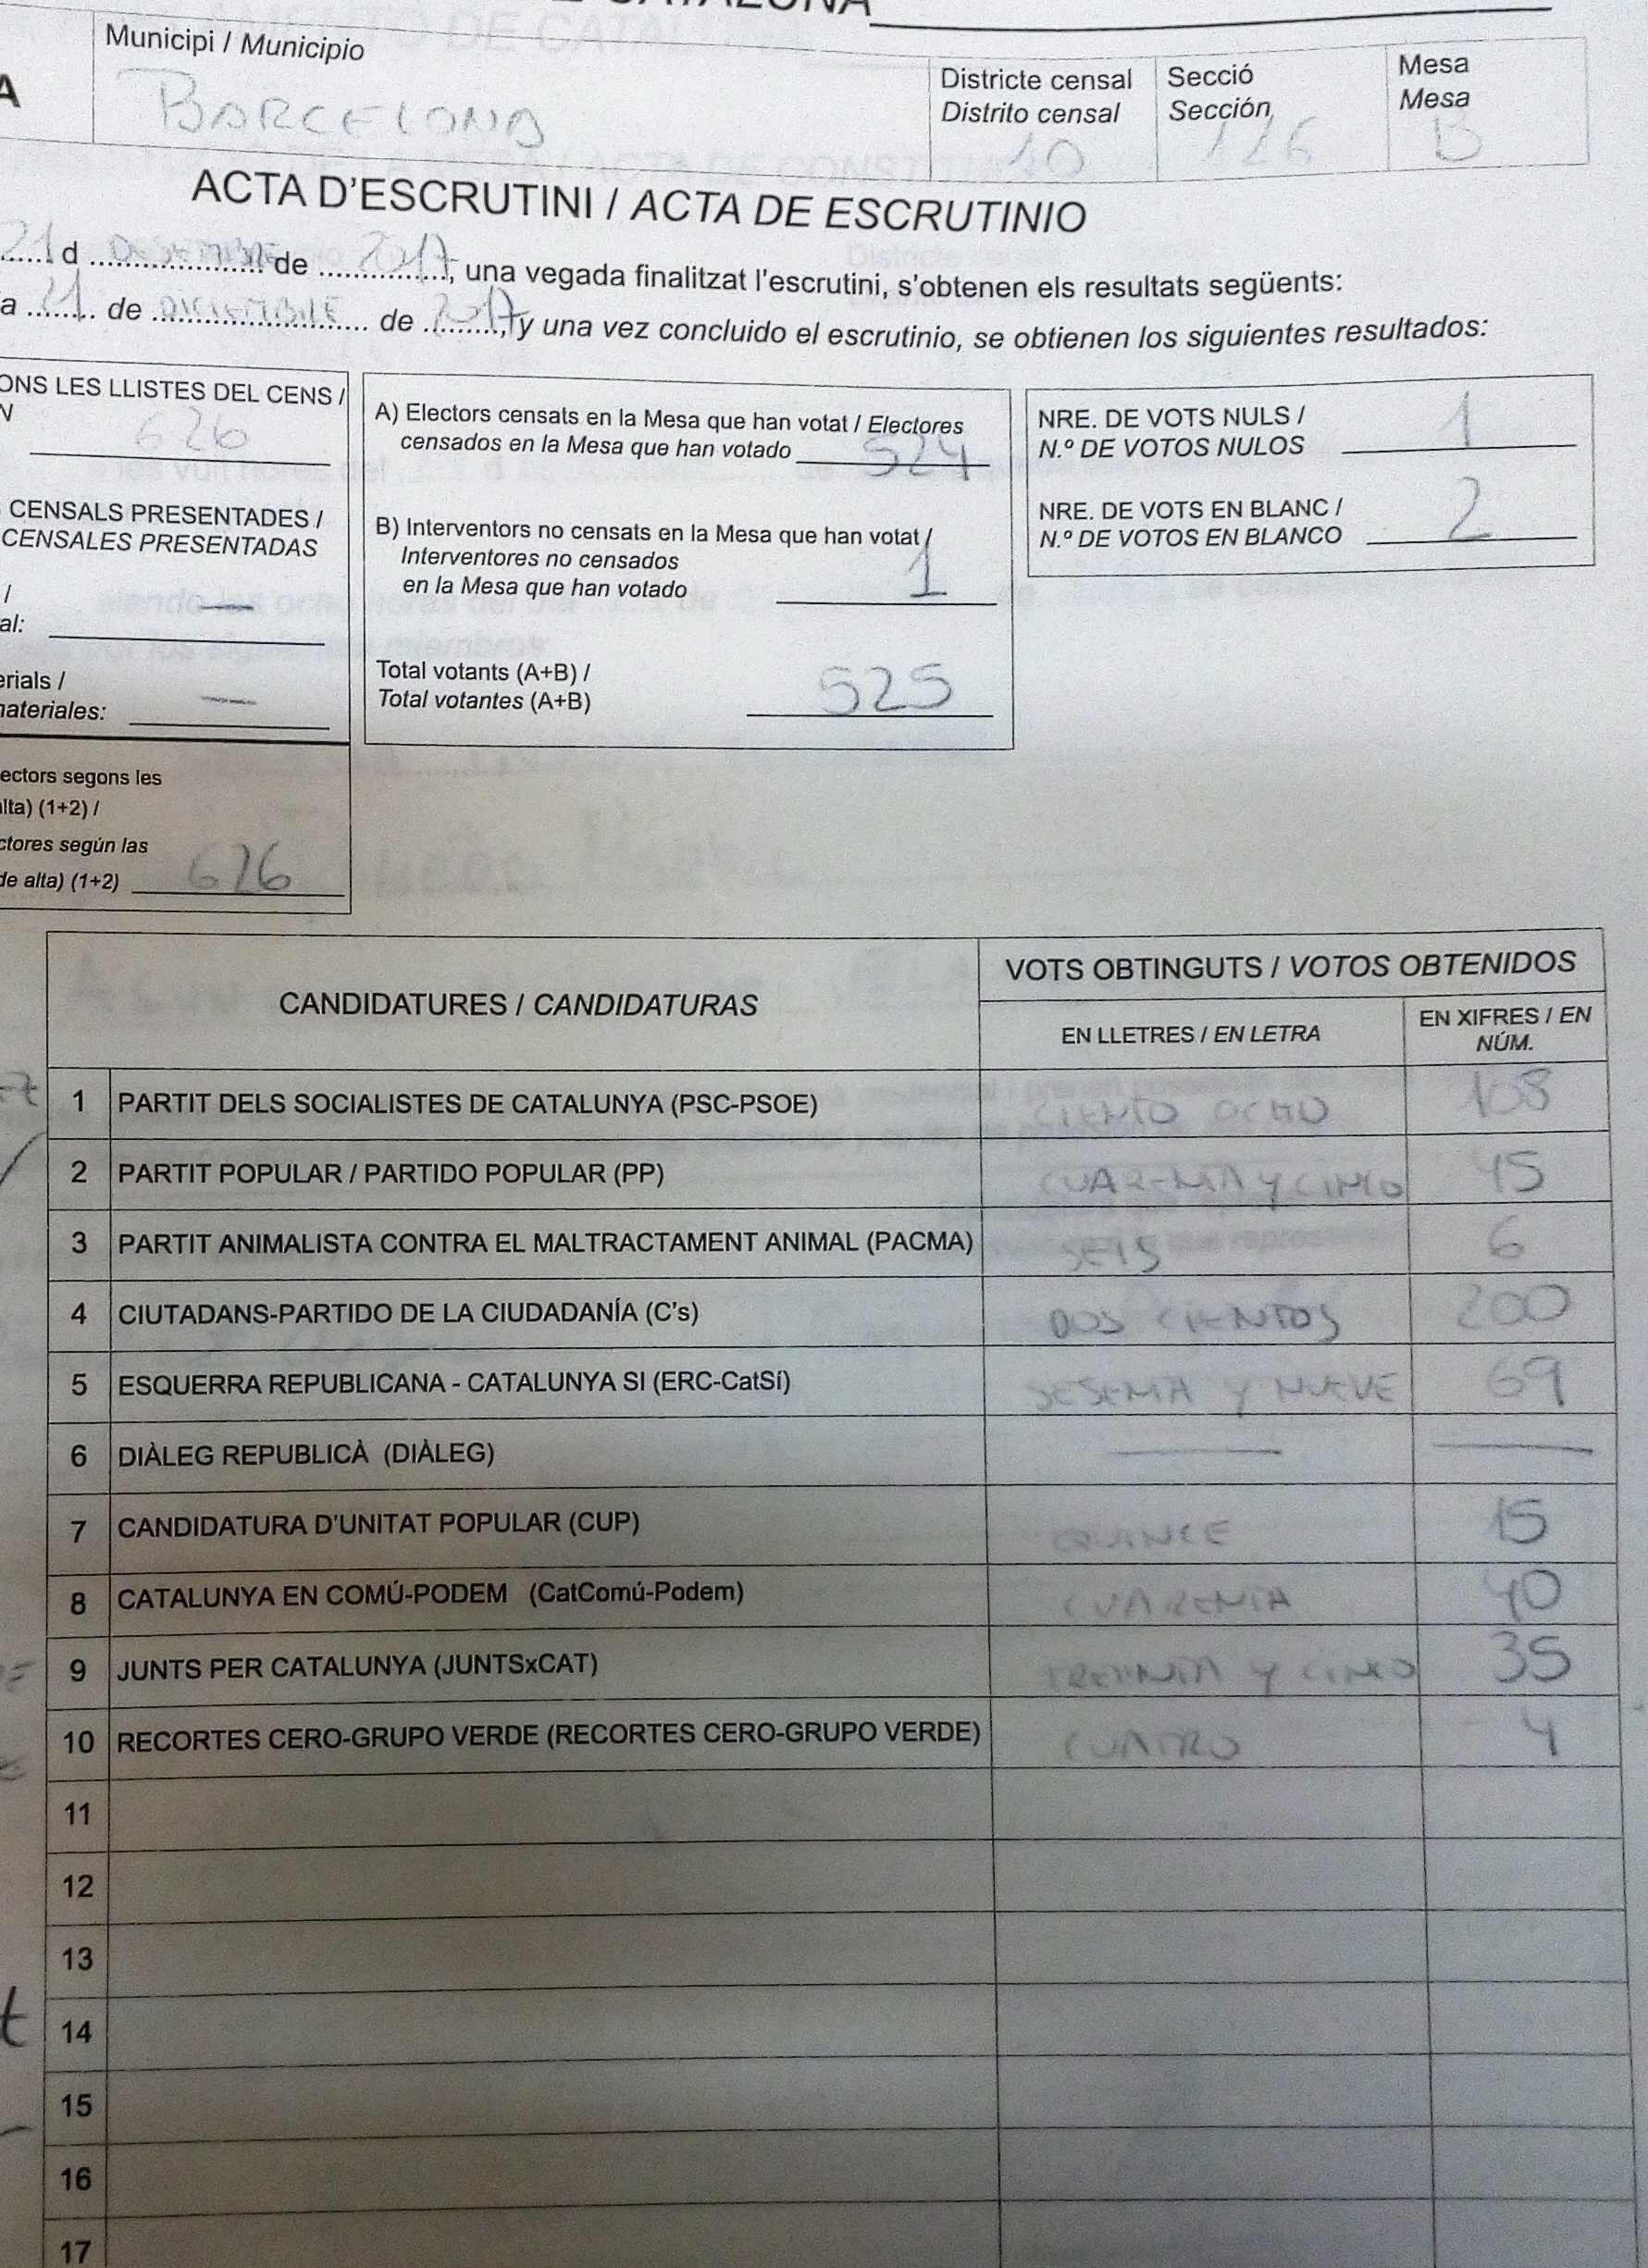 Municipi / Municipio
BARCELONA
Districte censal
Distrito censal
10
Secció
Sección
126
Mesa
Mesa
B
A
ACTA D'ESCRUTINI / ACTA DE ESCRUTINIO
21 d DESEMBRE de 2017, una vegada finalitzat l'escrutini, s'obtenen els resultats següents:
a 21 de DICIEMBRE de 2017, y una vez concluido el escrutinio, se obtienen los siguientes resultados:
ONS LES LLISTES DEL CENS /
N
626
CENSALS PRESENTADES /
CENSALES PRESENTADAS
/
al: —
erials /
nateriales: —
ectors segons les
alta) (1+2) /
ctores según las
de alta) (1+2) 626
A) Electors censats en la Mesa que han votat / Electores
censados en la Mesa que han votado 524
B) Interventors no censats en la Mesa que han votat /
Interventores no censados
en la Mesa que han votado 1
Total votants (A+B) /
Total votantes (A+B) 525
NRE. DE VOTS NULS /
N.º DE VOTOS NULOS 1
NRE. DE VOTS EN BLANC /
N.º DE VOTOS EN BLANCO 2
CANDIDATURES / CANDIDATURAS
VOTS OBTINGUTS / VOTOS OBTENIDOS
EN LLETRES / EN LETRA
EN XIFRES / EN
NÚM.
1 PARTIT DELS SOCIALISTES DE CATALUNYA (PSC-PSOE) CIENTO OCHO 108
2 PARTIT POPULAR / PARTIDO POPULAR (PP) CUARENTA Y CINCO 45
3 PARTIT ANIMALISTA CONTRA EL MALTRACTAMENT ANIMAL (PACMA) SEIS 6
4 CIUTADANS-PARTIDO DE LA CIUDADANÍA (C's) DOS CIENTOS 200
5 ESQUERRA REPUBLICANA - CATALUNYA SI (ERC-CatSí) SESENTA Y NUEVE 69
6 DIÀLEG REPUBLICÀ (DIÀLEG) — —
7 CANDIDATURA D'UNITAT POPULAR (CUP) QUINCE 15
8 CATALUNYA EN COMÚ-PODEM (CatComú-Podem) CUARENTA 40
9 JUNTS PER CATALUNYA (JUNTSxCAT) TREINTA Y CINCO 35
10 RECORTES CERO-GRUPO VERDE (RECORTES CERO-GRUPO VERDE) CUATRO 4
11
12
13
14
15
16
17